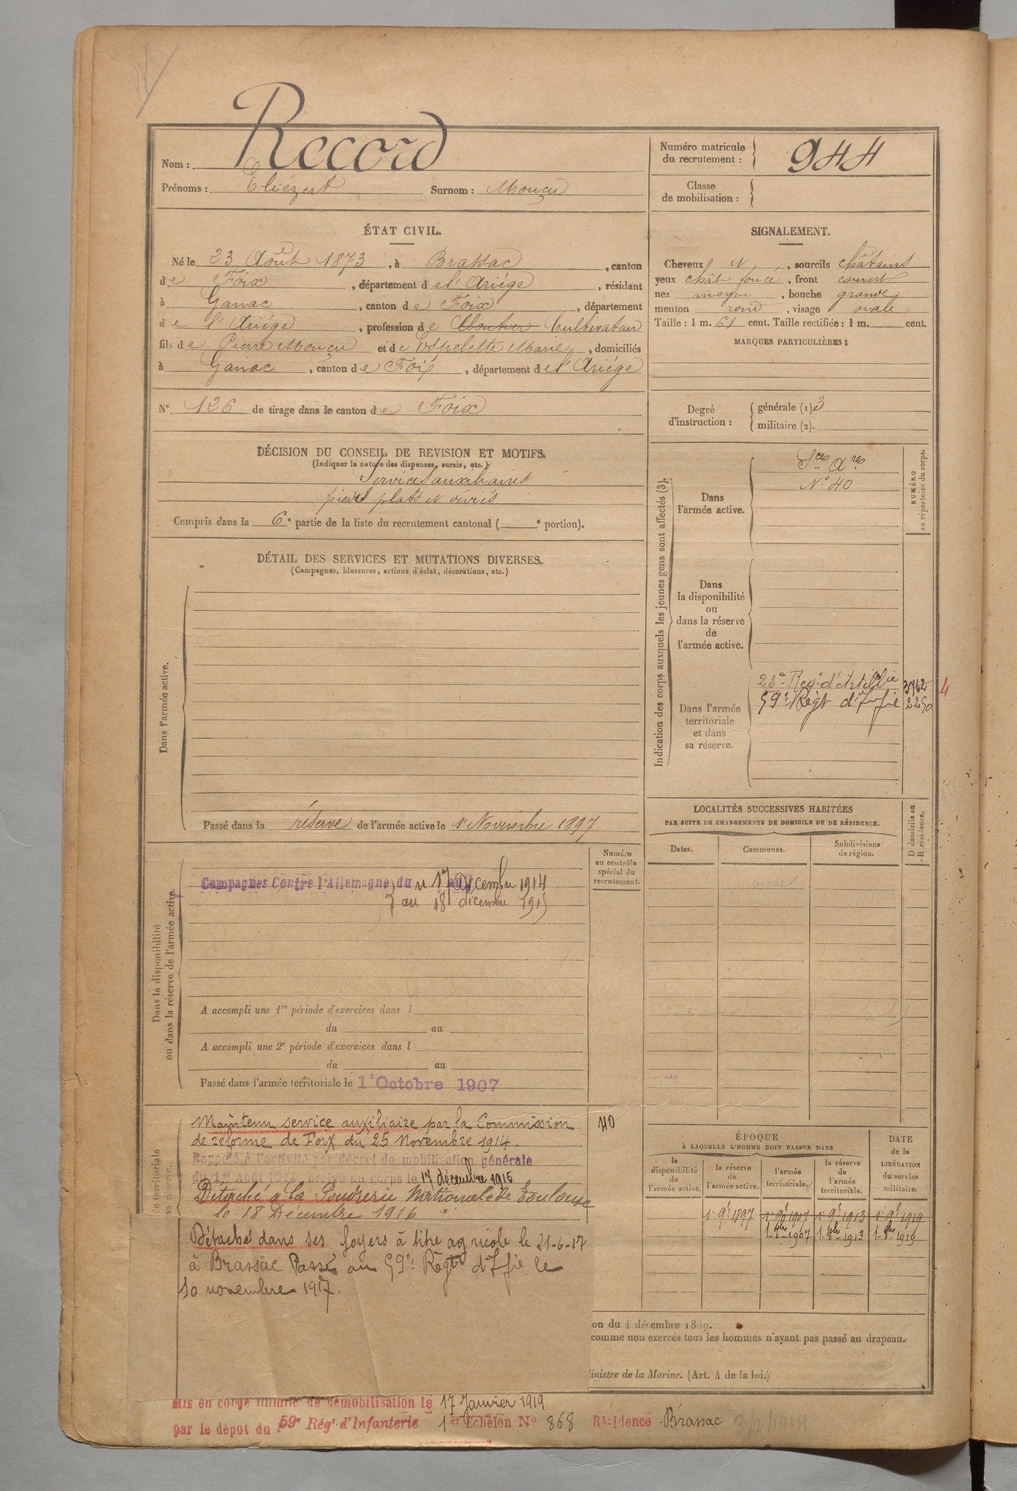 Nom : Record
Prénoms : Eliézert Surnom : Mouçu
Numéro matricule du recrutement : 944
Classe de mobilisation :
ÉTAT CIVIL.
Né le 23 Août 1873, à Brassac, canton
de Foix, département de l'Ariége, résidant
à Ganac, canton de Foix, département
de l'Ariége, profession de Cultivateur
fils de Pierre Mouçu et de Espelette Marie, domiciliés
à Ganac, canton de Foix, département de l'Ariége
N° 126 de tirage dans le canton de Foix
SIGNALEMENT.
Cheveux N, sourcils châtains
yeux chât foncé, front couvert
nez moyen, bouche grande
menton rond, visage ovale
Taille : 1 m. 61 cent. Taille rectifiée : 1 m. cent.
MARQUES PARTICULIÈRES :
Degré d'instruction : générale (1) 3
militaire (2).
DÉCISION DU CONSEIL DE REVISION ET MOTIFS.
(Indiquer la nature des dispenses, sursis, etc.)
Services auxiliaires
pieds plats
Compris dans la 6e partie de la liste du recrutement cantonal ( e portion).
DÉTAIL DES SERVICES ET MUTATIONS DIVERSES.
(Campagnes, blessures, actions d'éclat, décorations, etc.)
Dans l'armée active.
Passé dans la réserve de l'armée active le 1er Novembre 1897
Dans la disponibilité ou dans la réserve de l'armée active.
Numéro au contrôle spécial du recrutement.
Campagnes Contre l'Allemagne du 17 Décembre 1914
au 18 décembre 1915
A accompli une 1re période d'exercices dans l
du au
A accompli une 2e période d'exercices dans l
du au
Passé dans l'armée territoriale le 1er Octobre 1907
Maintenu service auxiliaire par la Commission 40
de réforme de Foix du 25 Novembre 1914.
Rappelé à l'activité par décret de mobilisation générale
du 1er Août 1914 au corps le 17 décembre 1915
Détaché à la Poudrerie Nationale de Toulouse
le 18 Décembre 1916
Détaché dans ses foyers à titre agricole le 21-6-17
à Brassac Passé au 59e Régt d'Ifie le
10 novembre 1917.
Mis en congé illimité de démobilisation le 17 Janvier 1919
par le dépôt du 59e Rég. d'Infanterie 1er Échelon N° 868 Résidence Brassac
Indication des corps auxquels les jeunes gens sont affectés (3).
NUMÉRO au répertoire du corps.
Dans l'armée active.
Sces Ares
N° 40
Dans la disponibilité ou dans la réserve de l'armée active.
Dans l'armée territoriale et dans sa réserve.
23e Reg. d'Artillie 3962 4
59e Régt d'Ifie 2250
LOCALITÉS SUCCESSIVES HABITÉES
PAR SUITE DE CHANGEMENTS DE DOMICILE OU DE RÉSIDENCE.
Dates.
Communes.
Subdivisions de région.
D domicile ou R résidence.
ÉPOQUE
À LAQUELLE L'HOMME DOIT PASSER DANS
DATE de la LIBÉRATION du service militaire.
la disponibilité de l'armée active.
la réserve de l'armée active.
l'armée territoriale.
la réserve de l'armée territoriale.
1er 9b 1897 1er 9b 1907 1er 9b 1913 1er 9b 1919
1-8bre-1907 1-8bre-1913 1-8bre-1919
on du 4 décembre 1889.
comme non exercés tous les hommes n'ayant pas passé au drapeau.
inistre de la Marine. (Art. 4 de la loi.)